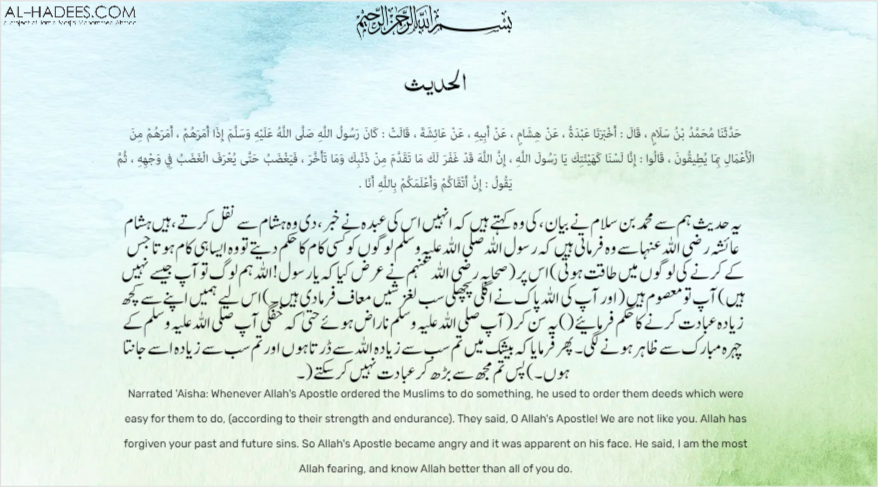 AL-HADEES.COM
بِسْمِ اللَّهِ الرَّحْمَٰنِ الرَّحِيمِ
الحديث
حَدَّثَنَا مُحَمَّدُ بْنُ سَلَامٍ ، قَالَ : أَخْبَرَنَا عَبْدَةُ ، عَنْ هِشَامٍ ، عَنْ أَبِيهِ ، عَنْ عَائِشَةَ ، قَالَتْ : كَانَ رَسُولُ اللَّهِ صَلَّى اللَّهُ عَلَيْهِ وَسَلَّمَ إِذَا أَمَرَهُمْ ، أَمَرَهُمْ مِنَ
الْأَعْمَالِ بِمَا يُطِيقُونَ ، قَالُوا : إِنَّا لَسْنَا كَهَيْئَتِكَ يَا رَسُولَ اللَّهِ ، إِنَّ اللَّهَ قَدْ غَفَرَ لَكَ مَا تَقَدَّمَ مِنْ ذَنْبِكَ وَمَا تَأَخَّرَ ، فَيَغْضَبُ حَتَّى يُعْرَفَ الْغَضَبُ فِي وَجْهِهِ ، ثُمَّ
يَقُولُ : إِنَّ أَتْقَاكُمْ وَأَعْلَمَكُمْ بِاللَّهِ أَنَا .
یہ حدیث ہم سے محمد بن سلام نے بیان ، کی وہ کہتے ہیں کہ انہیں اس کی عبدہ نے خبر ، دی وہ ہشام سے نقل کرتے ، ہیں ہشام
عائشہ رضی اللہ عنہا سے وہ فرماتی ہیں کہ رسول اللہ صلی اللہ علیہ وسلم لوگوں کو کسی کام کا حکم دیتے تو وہ ایسا ہی کام ہوتا جس
کے کرنے کی لوگوں میں طاقت ہوتی ) اس پر ( صحابہ رضی اللہ عنہم نے عرض کیا کہ یا رسول ! اللہ ہم لوگ تو آپ جیسے نہیں
ہیں ) آپ تو معصوم ہیں ( اور آپ کی اللہ پاک نے اگلی پچھلی سب لغزشیں معاف فرما دی ہیں ۔ ) اس لیے ہمیں اپنے سے کچھ
زیادہ عبادت کرنے کا حکم فرمائیے ( ) یہ سن کر ( آپ صلی اللہ علیہ وسلم ناراض ہوئے حتیٰ کہ خفگی آپ صلی اللہ علیہ وسلم کے
چہرہ مبارک سے ظاہر ہونے لگی ۔ پھر فرمایا کہ بیشک میں تم سب سے زیادہ اللہ سے ڈرتا ہوں اور تم سب سے زیادہ اسے جانتا
ہوں ۔ ) پس تم مجھ سے بڑھ کر عبادت نہیں کر سکتے ( ۔
Narrated 'Aisha: Whenever Allah's Apostle ordered the Muslims to do something, he used to order them deeds which were
easy for them to do, (according to their strength and endurance). They said, O Allah's Apostle! We are not like you. Allah has
forgiven your past and future sins. So Allah's Apostle became angry and it was apparent on his face. He said, I am the most
Allah fearing, and know Allah better than all of you do.